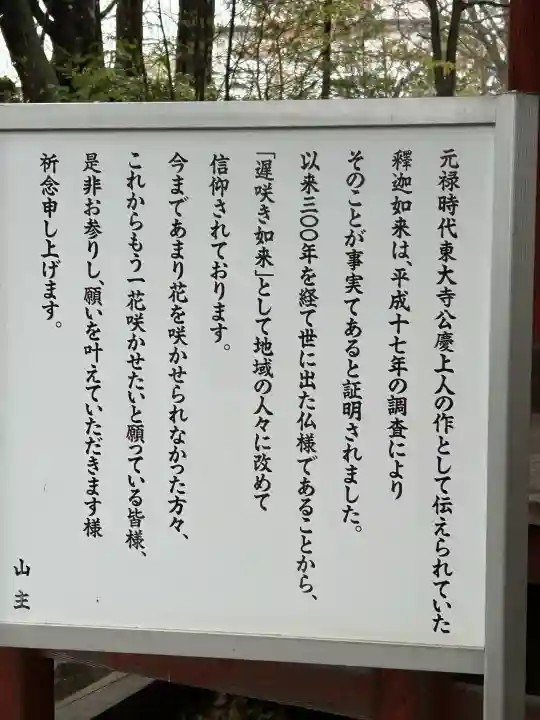 元禄時代東大寺公慶上人の作として伝えられていた
釋迦如来は、平成十七年の調査により
そのことが事実であると証明されました。
以来三〇〇年を経て世に出た仏様であることから、
「遅咲き如来」として地域の人々に改めて
信仰されております。
今まであまり花を咲かせられなかった方々、
これからもう一花咲かせたいと願っている皆様、
是非お参りし、願いを叶えていただきます様
祈念申し上げます。
山主